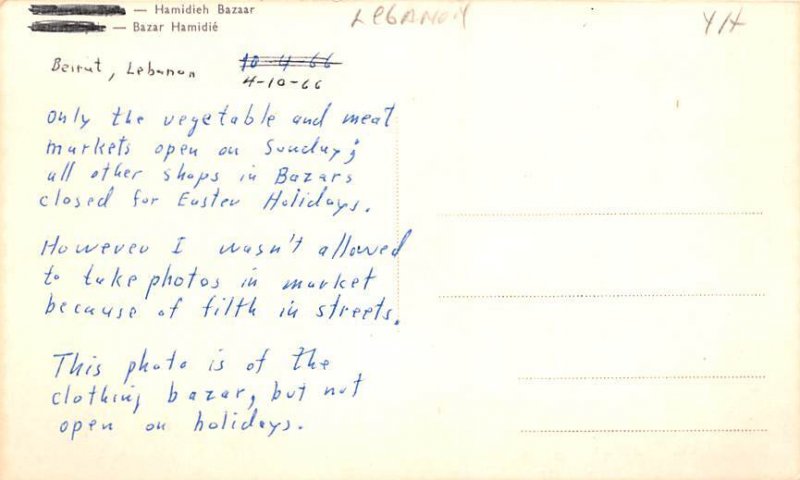 — Hamidieh Bazaar
— Bazar Hamidié
LEBANON
Y/4
Beirut, Lebanon
10-4-66
4-10-66
only the vegetable and meat
markets open on Sunday;
all other shops in Bazars
closed for Easter Holidays.
However I wasn't allowed
to take photos in market
because of filth in streets.
This photo is of the
clothing bazar, but not
open on holidays.